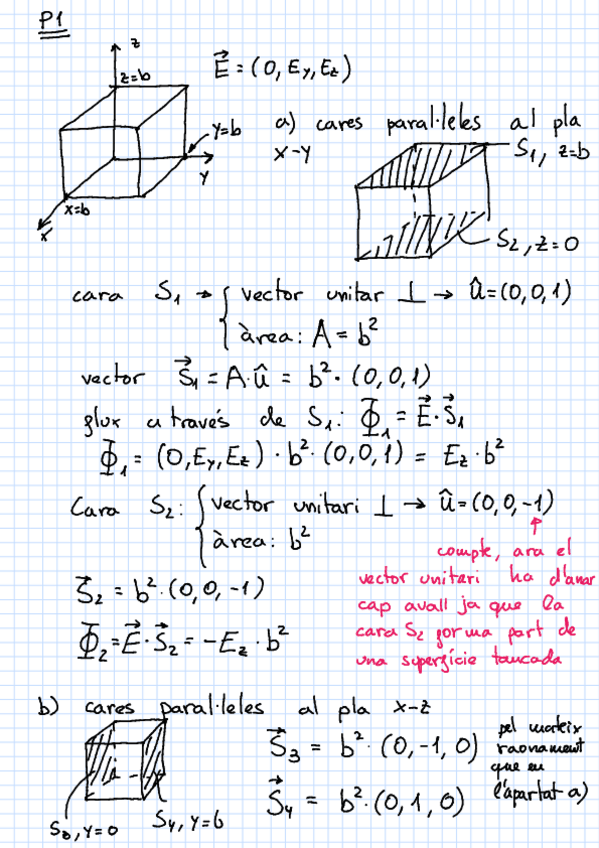 P1
z
z=b
E⃗ = (0, Ey, Ez)
y=b
y
x=b
x
a) cares paral·leles al pla
x-y
S₁, z=b
S₂, z=0
cara S₁ → { vector unitar ⊥ → û=(0,0,1)
àrea: A = b²
vector S⃗₁ = A·û = b²·(0,0,1)
flux a través de S₁: Φ₁ = E⃗·S⃗₁
Φ₁ = (0,Ey,Ez)·b²·(0,0,1) = Ez·b²
Cara S₂: { vector unitari ⊥ → û=(0,0,-1)
àrea: b²
compte, ara el
vector unitari ha d'anar
cap avall ja que la
cara S₂ forma part de
una superfície tancada
S⃗₂ = b²·(0,0,-1)
Φ₂ = E⃗·S⃗₂ = -Ez·b²
b) cares paral·leles al pla x-z
S₃, y=0
S₄, y=b
S⃗₃ = b²·(0,-1,0)
S⃗₄ = b²·(0,1,0)
pel mateix
raonament
que en
l'apartat a)